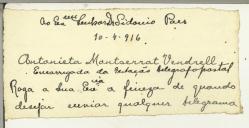 Ao Exmo Senhor Dr Sidonio Paes
10-4-916
Antonieta Montserrat Vendrell
Encarregada da Estação telegrafo postal
Roga a Sua Excia a fineza de quando
desejar enviar qualquer telegrama